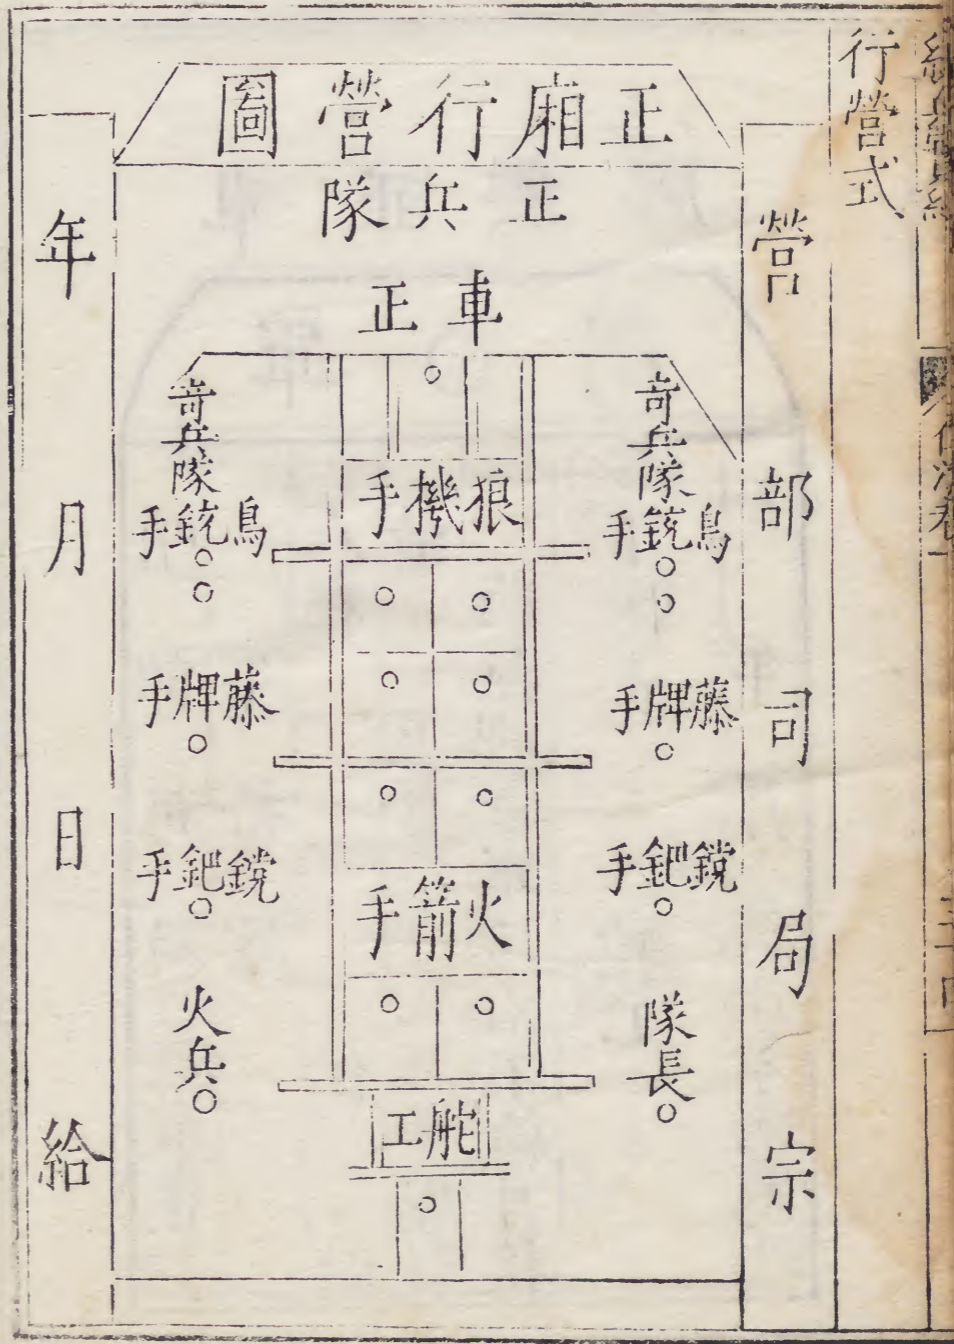 行營式
營部司局宗
正廂行營圖
正兵隊
車正
奇兵隊
鳥銃手
藤牌手
鎲鈀手
隊長
狼機手
火箭手
舵工
奇兵隊
鳥銃手
藤牌手
鎲鈀手
火兵
年月日給